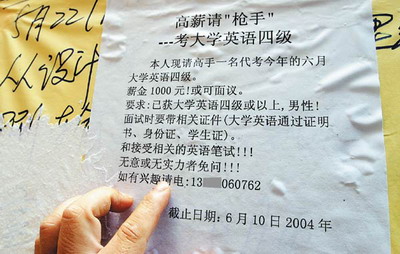 5月22
高薪请"枪手"
---考大学英语四级
本人现请高手一名代考今年的六月
大学英语四级。
薪金1000元!或可面议。
要求:已获大学英语四级或以上,男性!
面试时要带相关证件(大学英语通过证明
书、身份证、学生证)。
和接受相关的英语笔试!!!
无意或无实力者免问!!!
如有兴趣请电:13 060762
截止日期:6月10日2004年